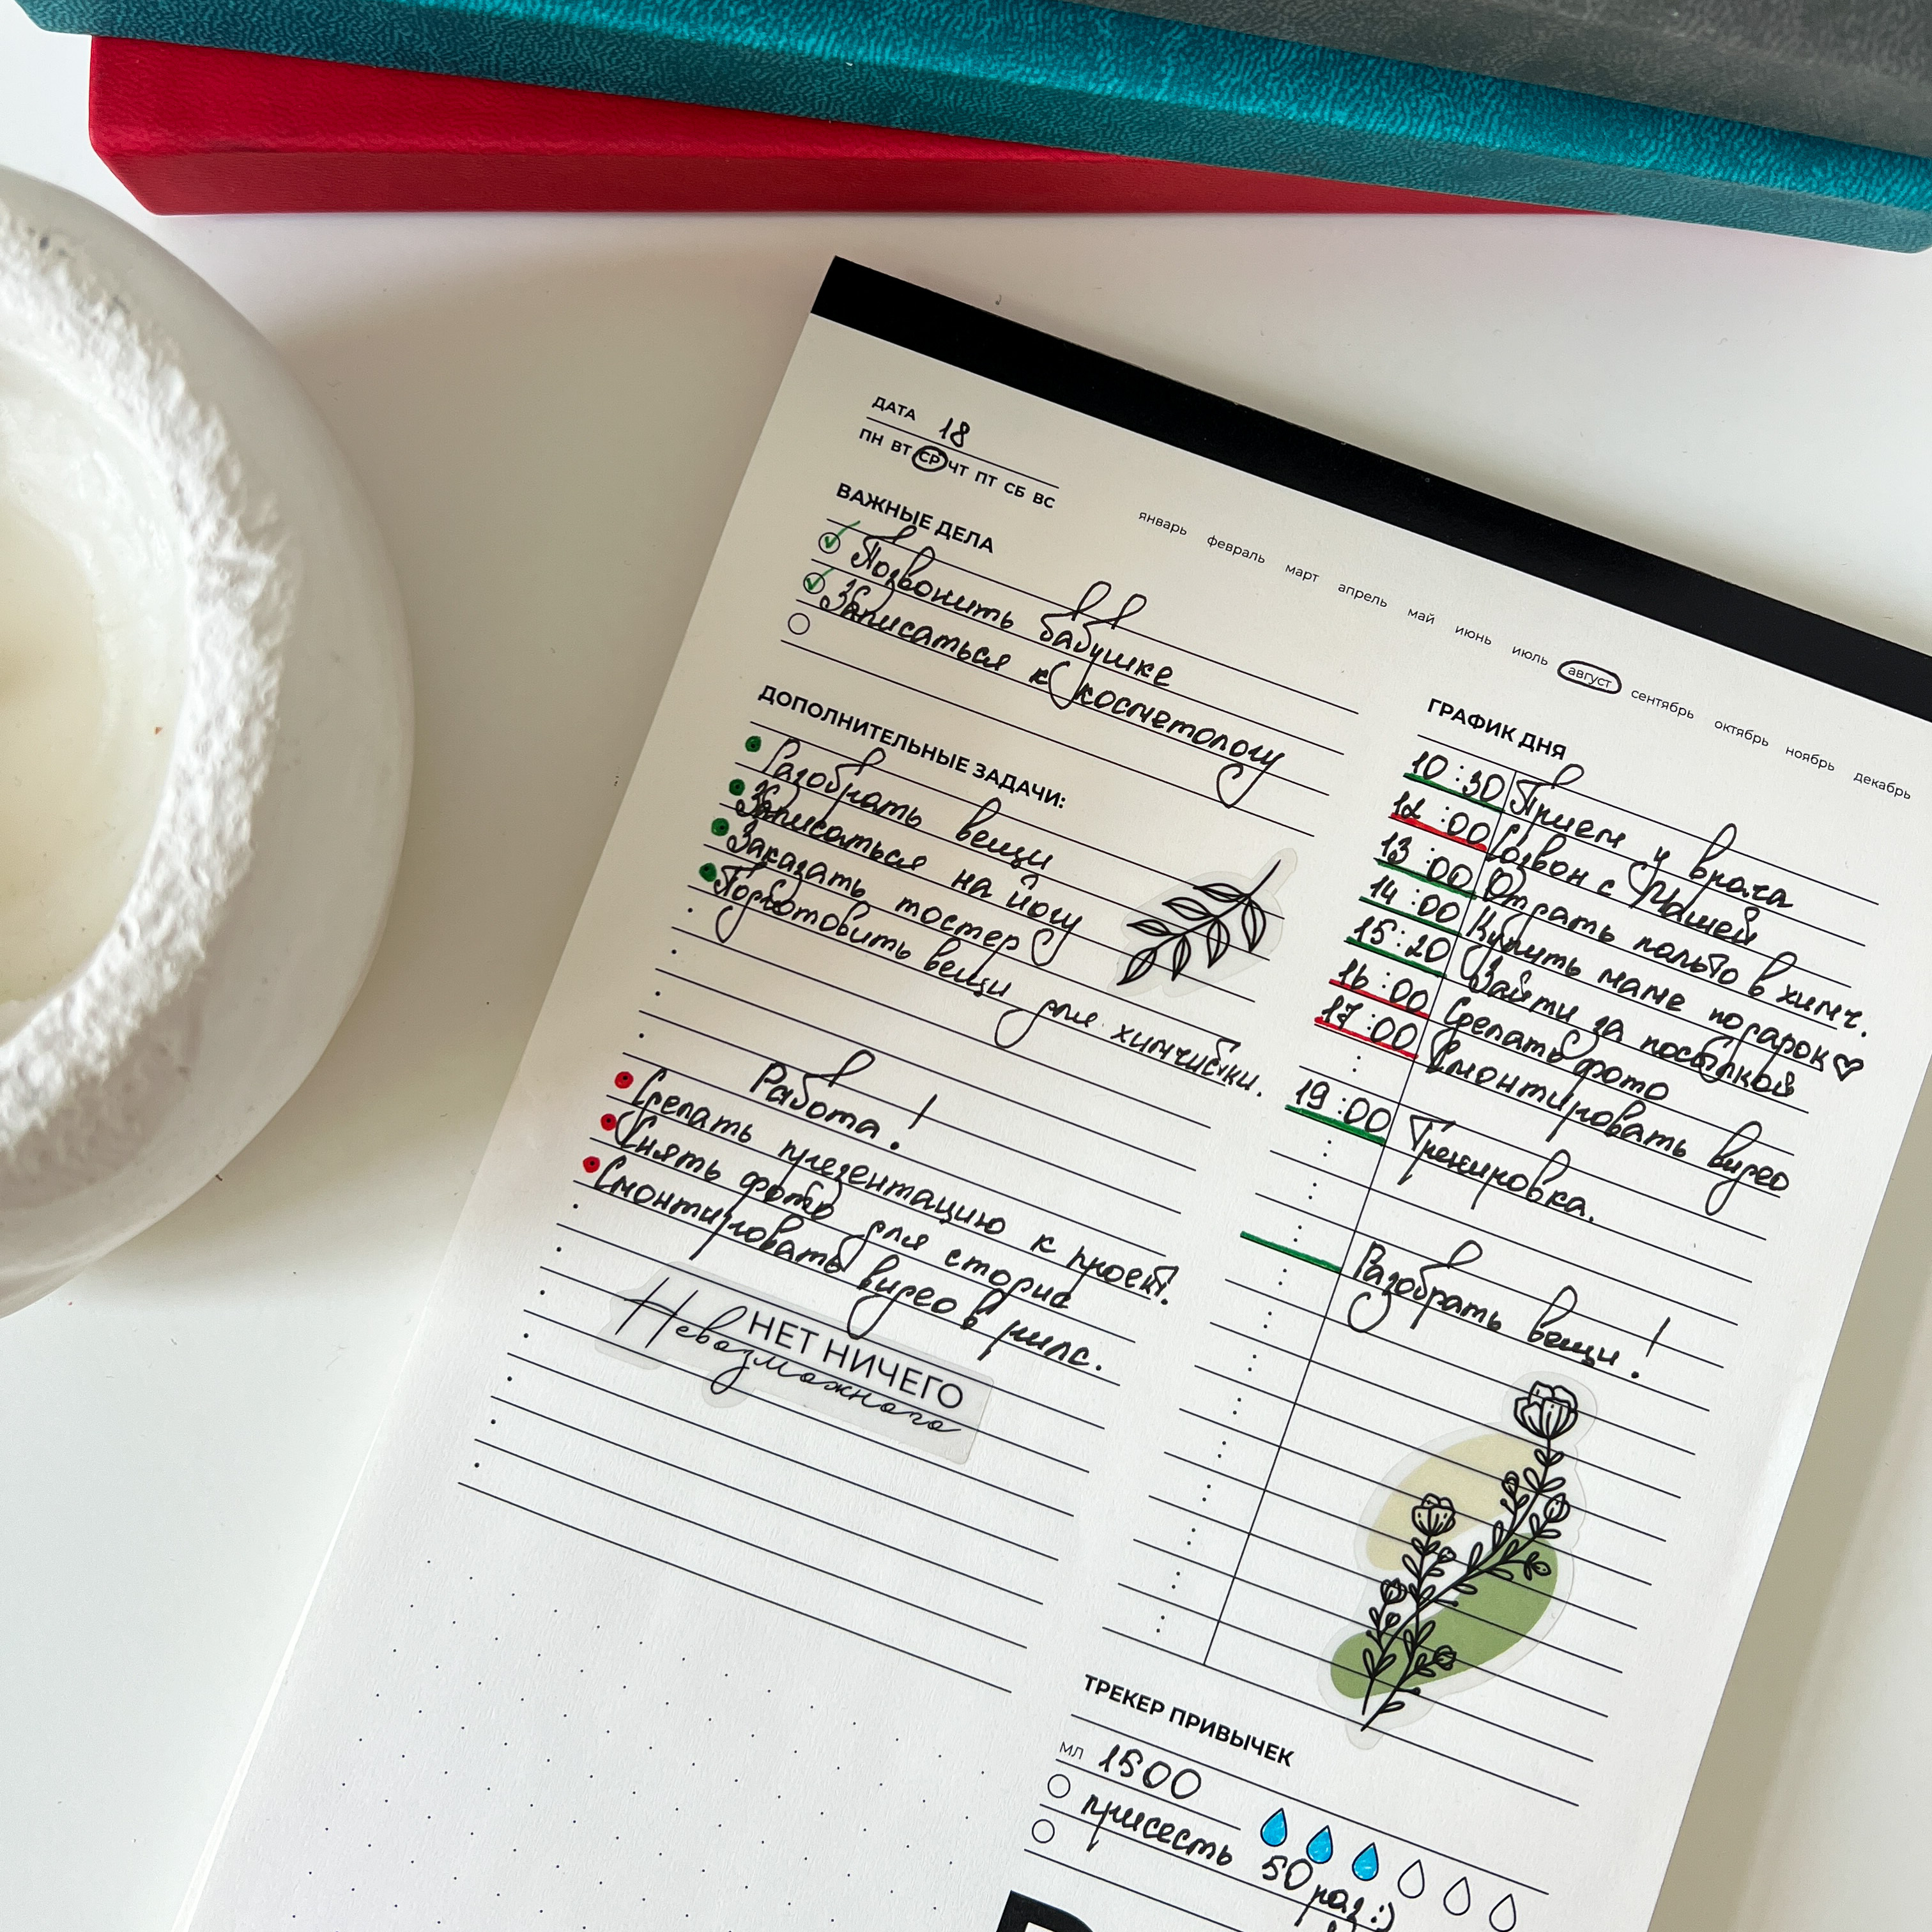 ДАТА 18
ПН ВТ СР ЧТ ПТ СБ ВС
январь февраль март апрель май июнь июль август сентябрь октябрь ноябрь декабрь
ВАЖНЫЕ ДЕЛА
Позвонить бабушке
Записаться к косметологу
ДОПОЛНИТЕЛЬНЫЕ ЗАДАЧИ:
Разобрать вещи
Записаться на йогу
Заказать тостер
Подготовить вещи для химчистки.
Работа!
Сделать презентацию к проект.
Снять фото для сторис
Смонтировать видео в рилс.
НЕТ НИЧЕГО
Невозможного
ГРАФИК ДНЯ
10:30 Прием у врача
12:00 Созвон с Машей
13:00 Отдать пальто в химч.
14:00 Купить маме подарок
15:20 Зайти за посылкой
16:00 Сделать фото
17:00 Смонтировать видео
19:00 Тренировка.
Разобрать вещи!
ТРЕКЕР ПРИВЫЧЕК
МЛ 1500
присесть 50 раз :)